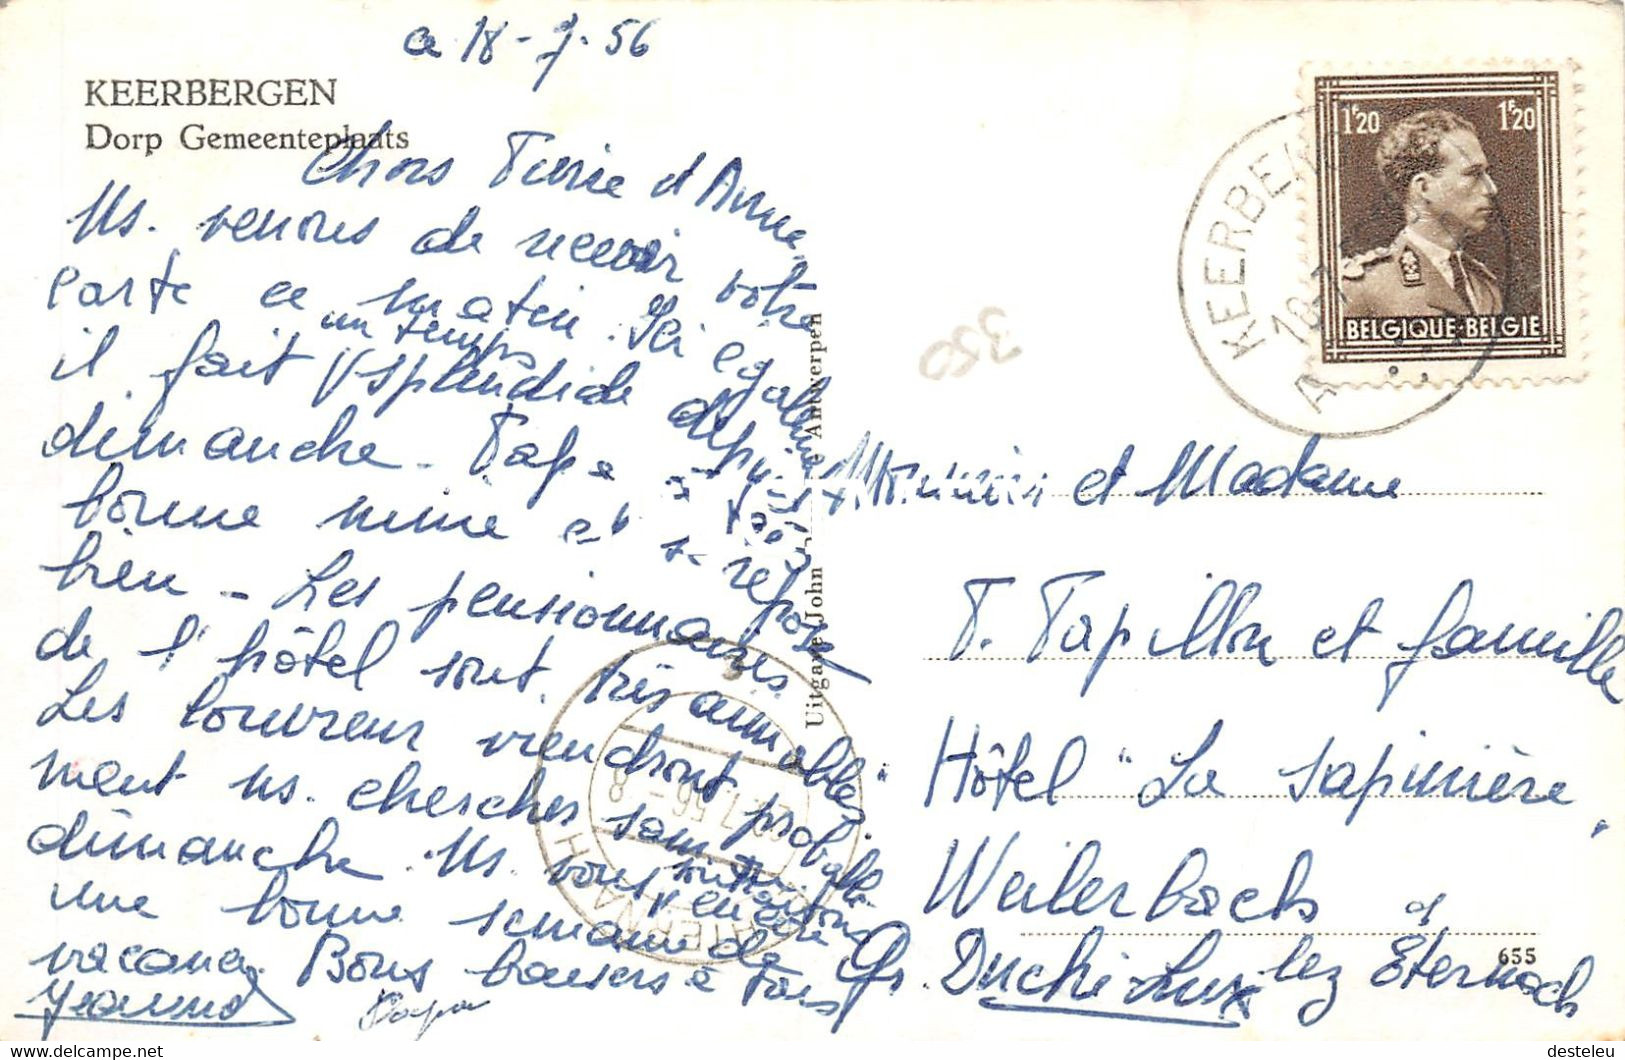 a 18-7-56
KEERBERGEN
Dorp Gemeenteplaats
Chers et Anne
Ns. venons de recevoir votre
carte ce matin. Ici également
il fait un temps splendide depuis
dimanche. Papa a très
bonne mine et se repose
bien - Les pensionnaires
de l'hôtel sont très aimables
Les viendront probable
ment ns. chercher samedi ou
dimanche. Ns. vous souhaitons encore
une bonne semaine de
vacances. Bons baisers à tous
Papa
Uitgave John Antwerpen
1F20 1F20
BELGIQUE·BELGIE
KEERBERGEN
A
350
ECHTERNACH
Monsieur et Madame
T. Papillon et famille
Hôtel "La Sapinière"
Weilerbach
Gr. Duché Lux lez Eternach
655
https://www.delcampe.net
desteleu